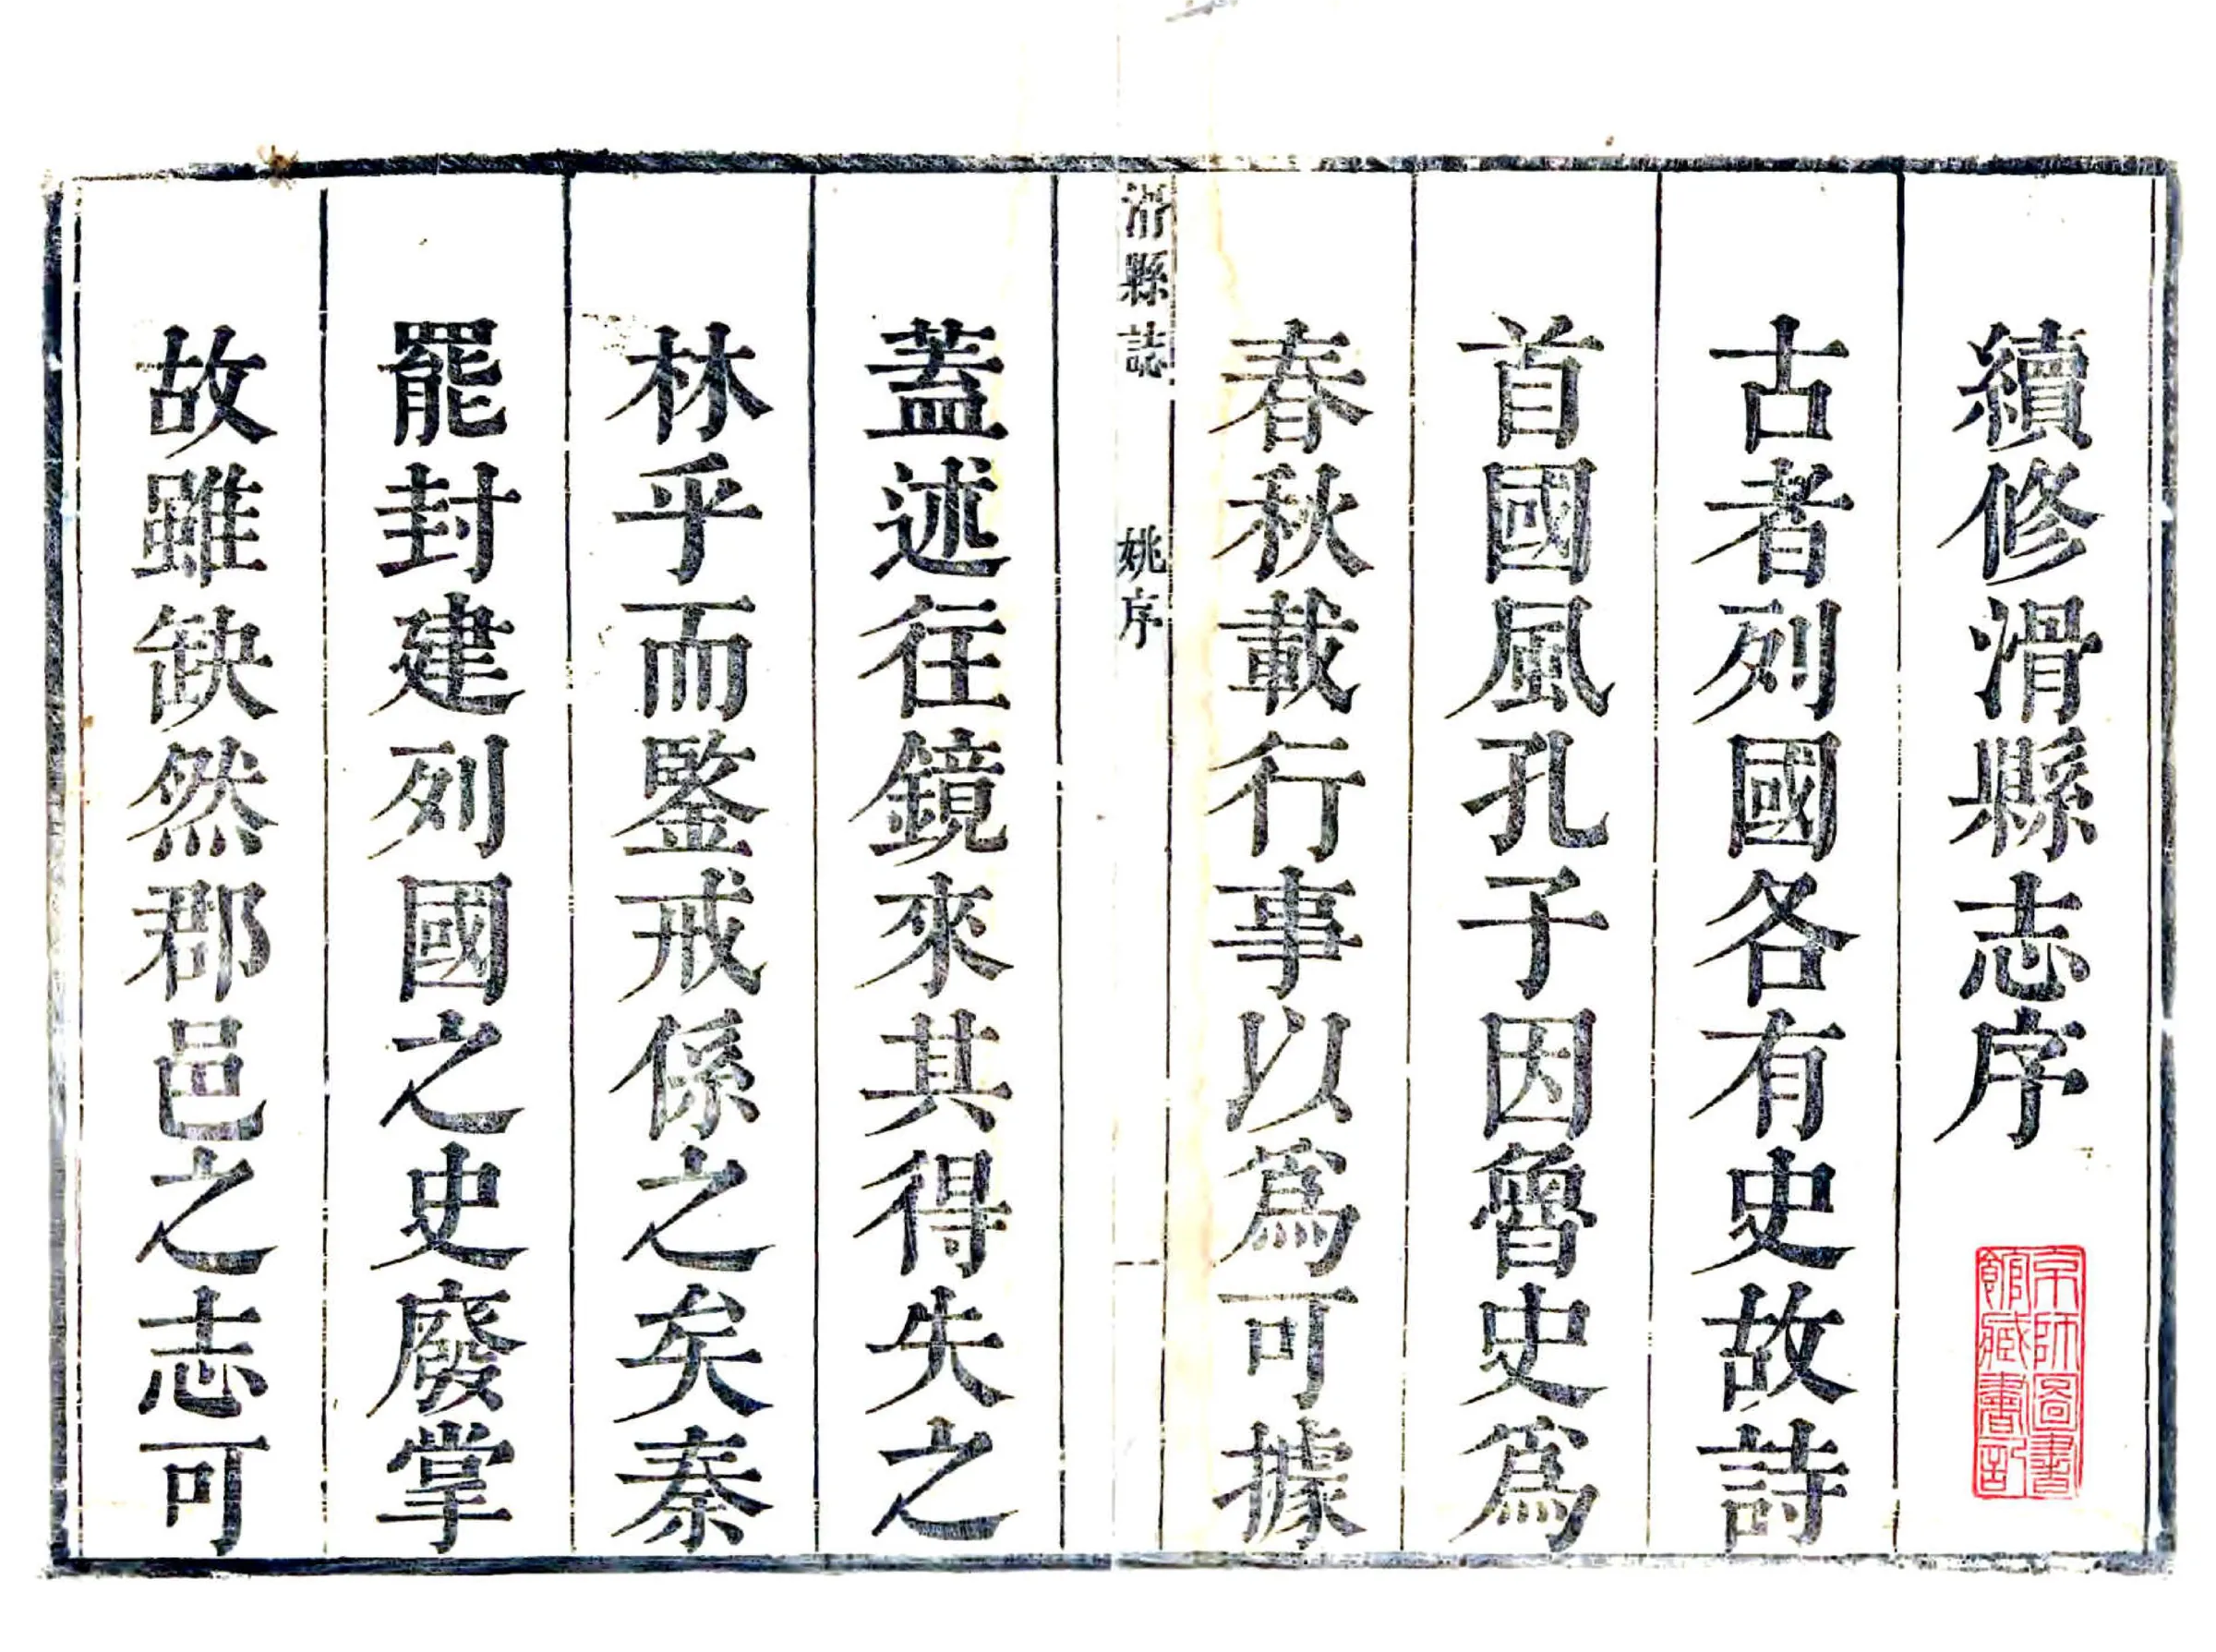 續修滑縣志序
京師圖書
館藏書記
古者列國各有史故詩
首國風孔子因魯史為
春秋載行事以為可據
滑縣誌
姚序
一
蓋述往鏡來其得失之
林乎而鑒戒係之矣秦
罷封建列國之史廢掌
故雖缺然郡邑之志可